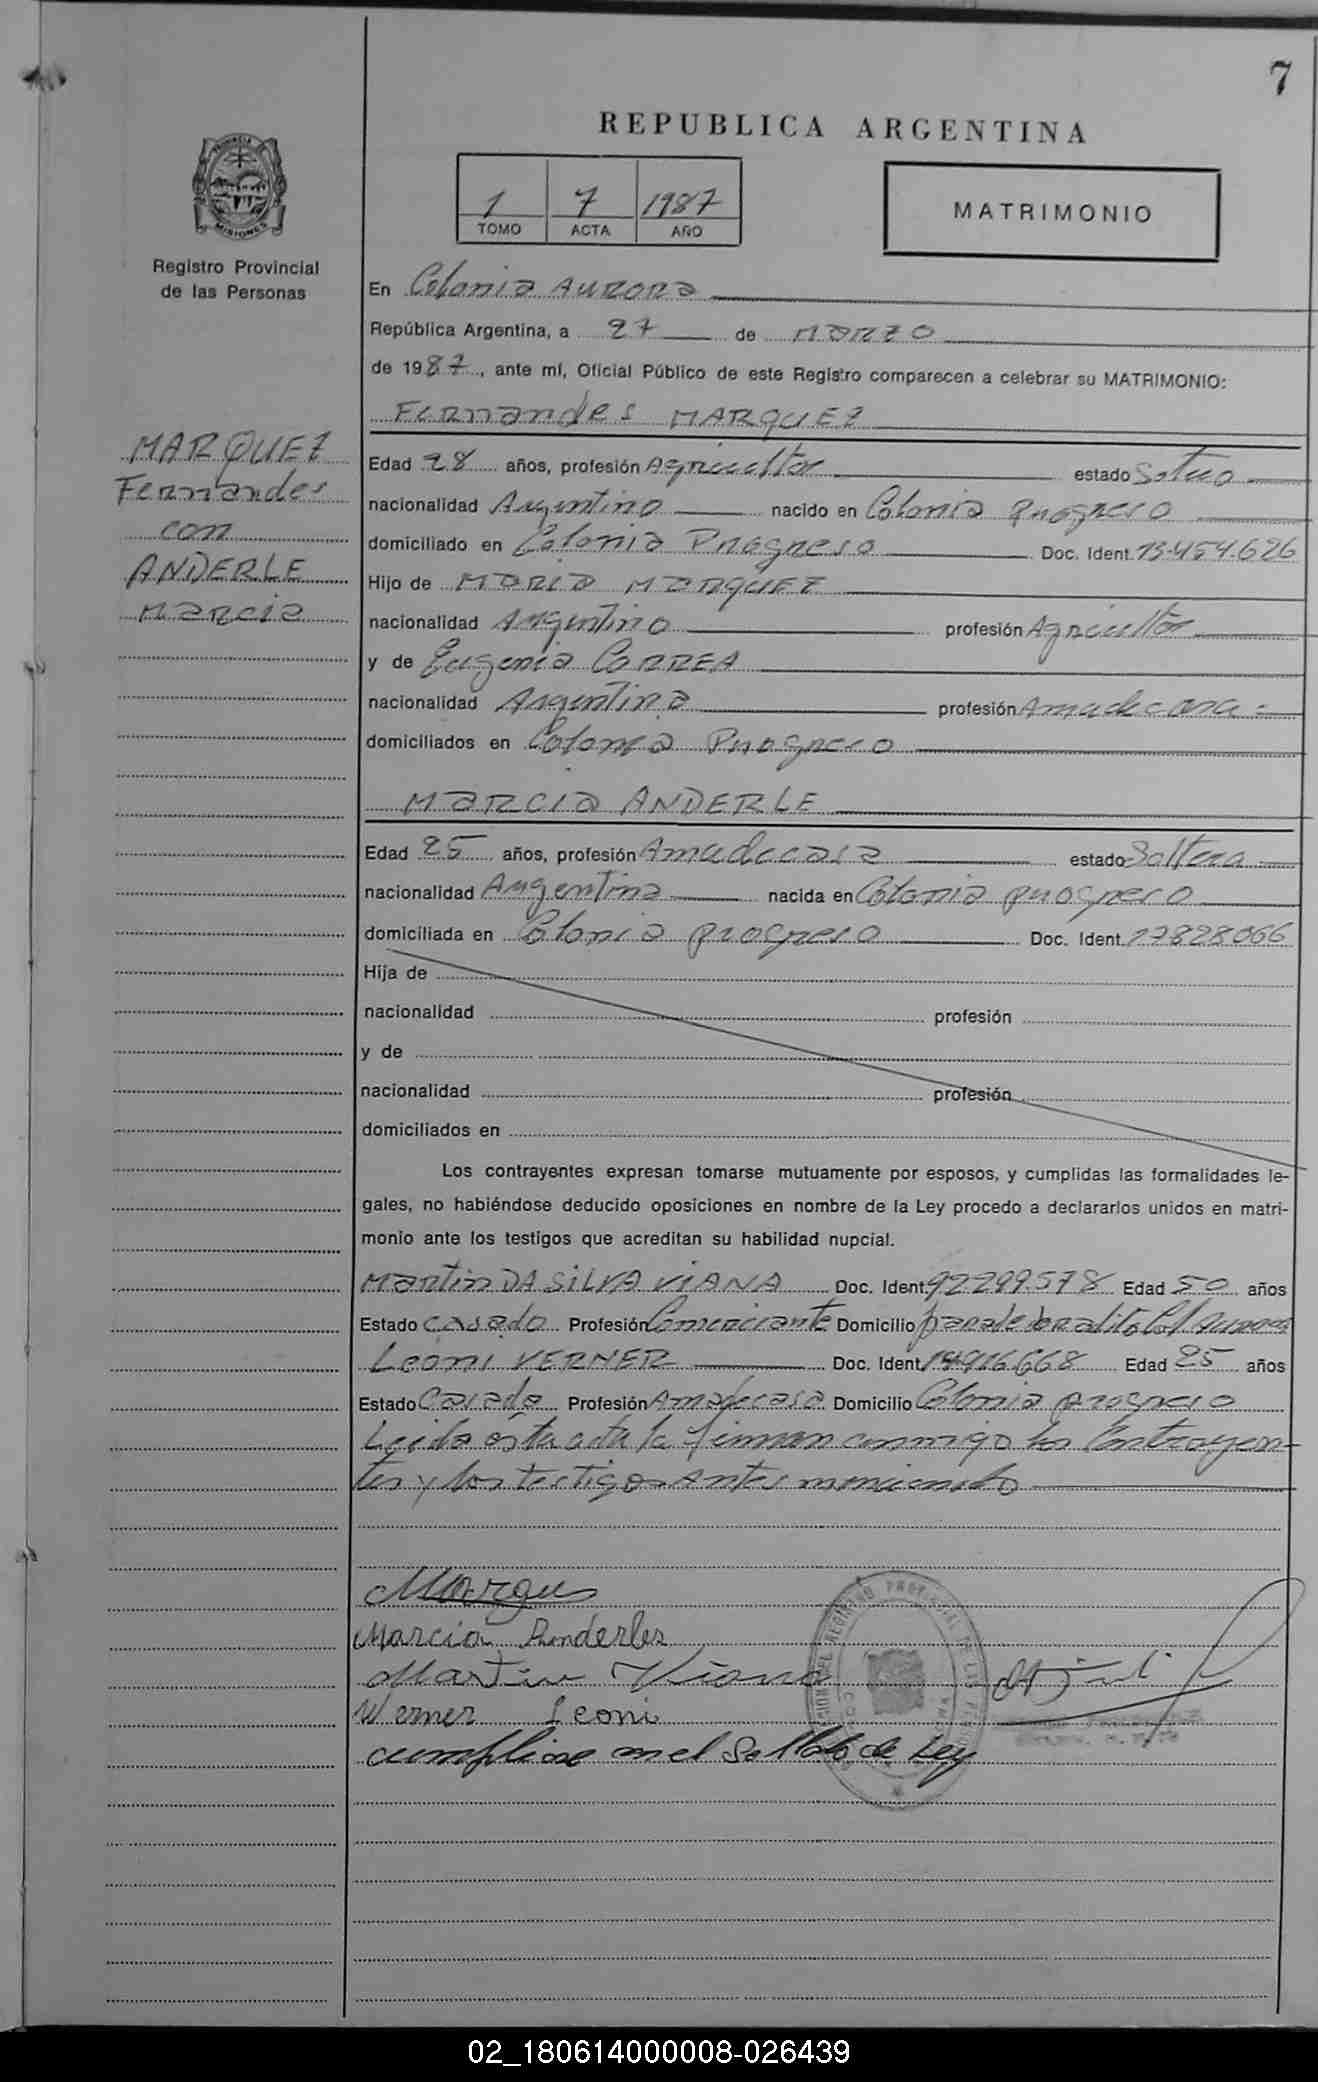 7
REPUBLICA ARGENTINA
PROVINCIA DE MISIONES
1 7 1987
TOMO ACTA AÑO
MATRIMONIO
Registro Provincial
de las Personas
En Colonia AURORA
República Argentina, a 27 de MARZO
de 1987, ante mí, Oficial Público de este Registro comparecen a celebrar su MATRIMONIO:
Fernandes MARQUEZ
MARQUEZ
Fernandes
con
ANDERLE
Marcia
Edad 28 años, profesión Agricultor estado Soltero
nacionalidad Argentino nacido en Colonia Progreso
domiciliado en Colonia Progreso Doc. Ident. 13.454.626
Hijo de MARIA MARQUEZ
nacionalidad Argentino profesión Agricultor
y de Eugenia CORREA
nacionalidad Argentina profesión Amadecasa
domiciliados en Colonia Progreso
MARCIA ANDERLE
Edad 25 años, profesión Amadecasa estado Soltera
nacionalidad Argentina nacida en Colonia progreso
domiciliada en Colonia progreso Doc. Ident. 17828066
Hija de
nacionalidad profesión
y de
nacionalidad profesión
domiciliados en
Los contrayentes expresan tomarse mutuamente por esposos, y cumplidas las formalidades le-
gales, no habiéndose deducido oposiciones en nombre de la Ley procedo a declararlos unidos en matri-
monio ante los testigos que acreditan su habilidad nupcial.
Martin DA SILVA VIANA Doc. Ident. 92299578 Edad 50 años
Estado casado Profesión Comerciante Domicilio Col Aurora
Leoni VERNER Doc. Ident. 14916668 Edad 25 años
Estado Casada Profesión Amadecasa Domicilio Colonia progreso
Leida esta acta la firman conmigo los Contrayen-
tes y los testigos Antes mencionado
Marques
Marcia Anderler
Martin Viana
Werner Leoni
cumpliose con el Sellado de Ley
02_180614000008-026439